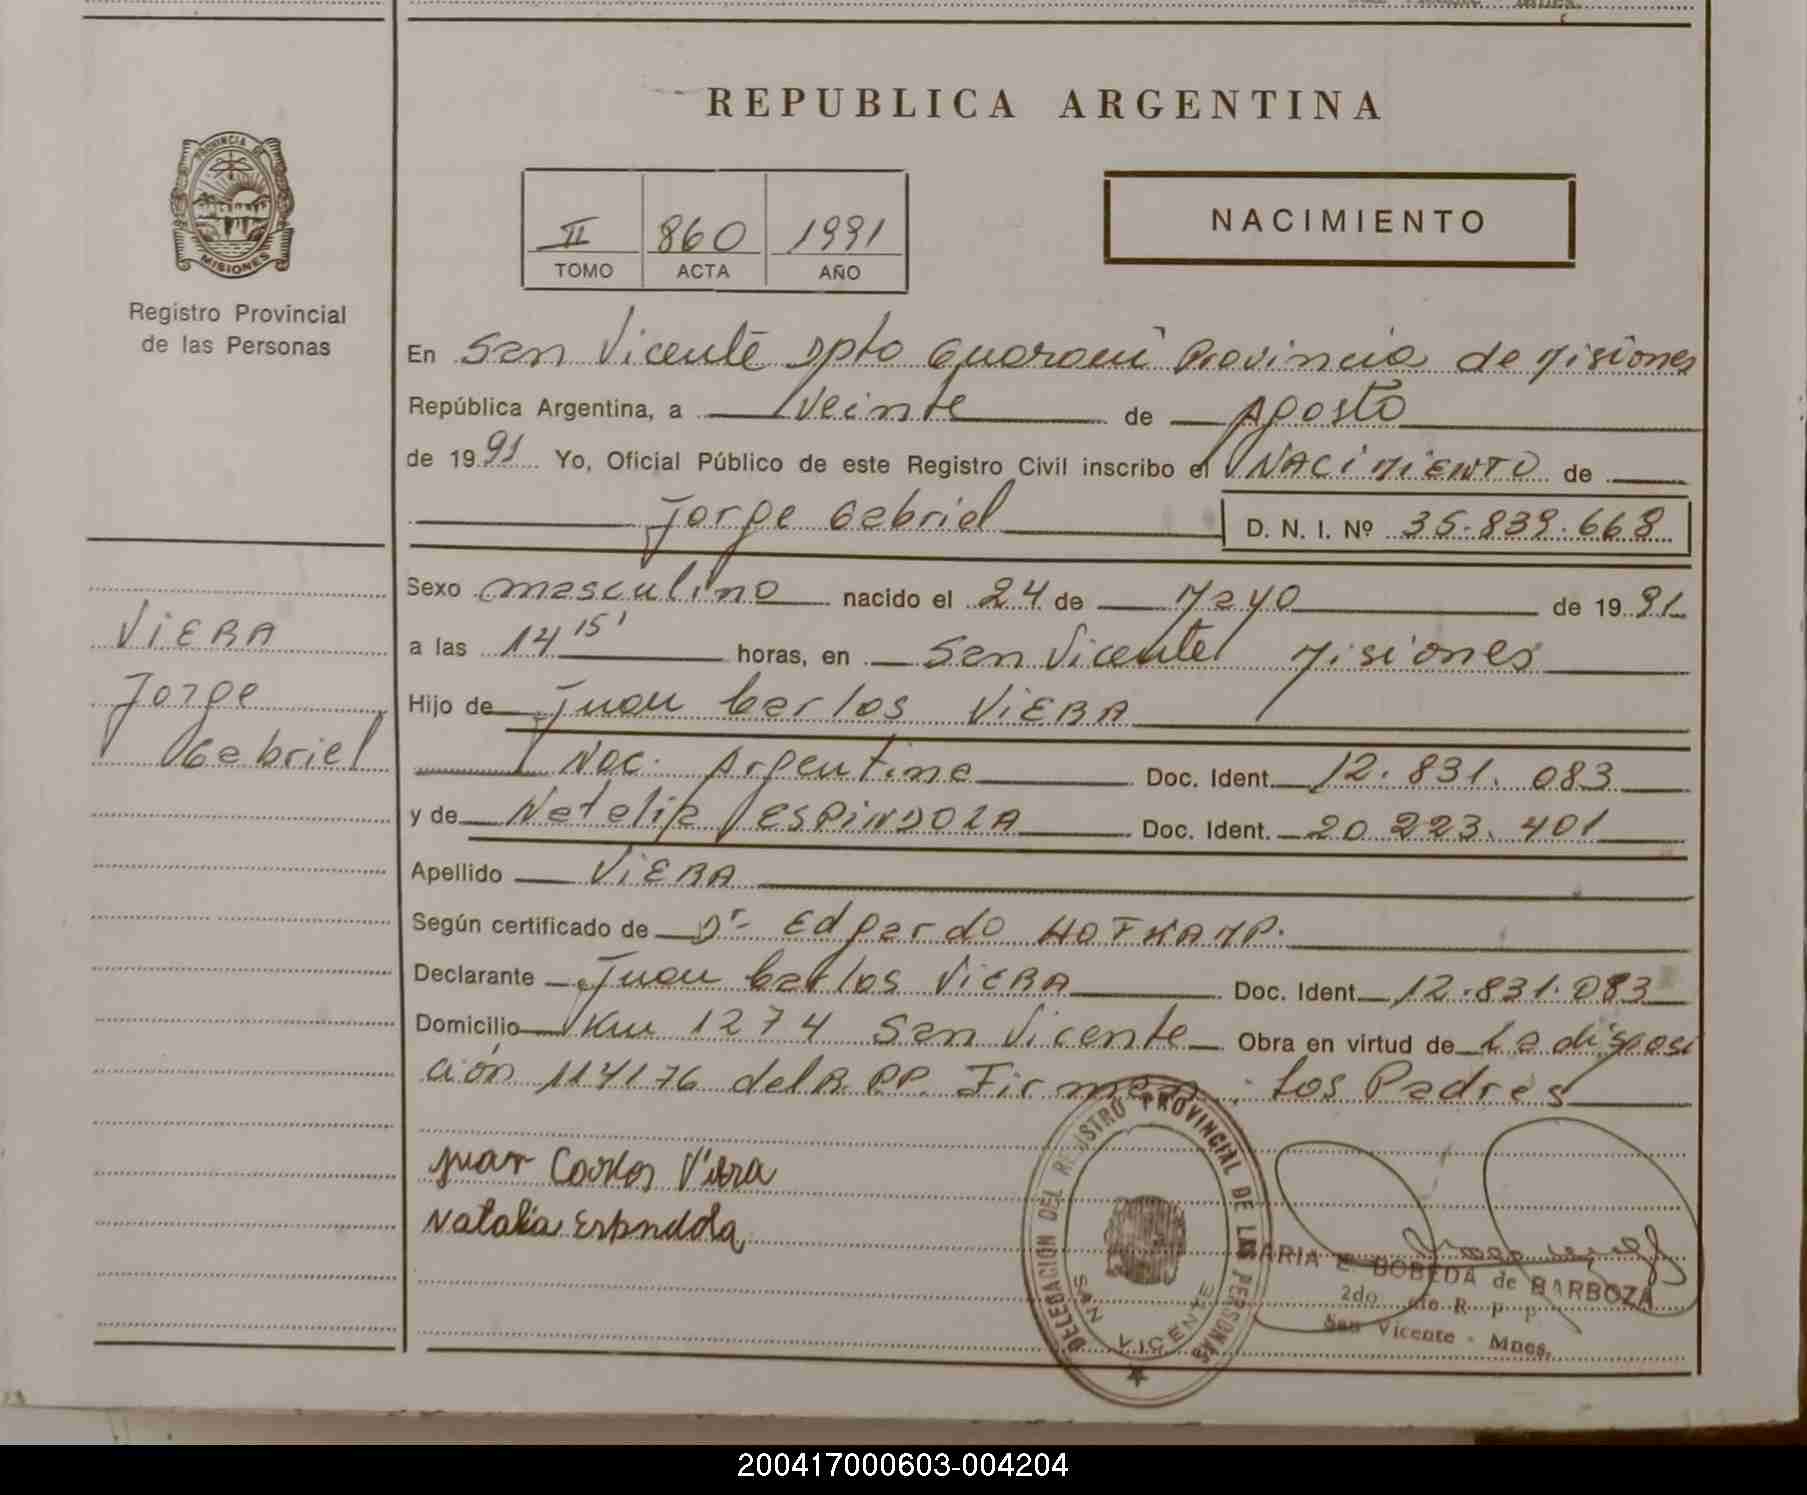 REPUBLICA ARGENTINA
PROVINCIA DE
MISIONES
Registro Provincial
de las Personas
II 860 1991
TOMO ACTA AÑO
NACIMIENTO
En San Vicente Dpto Guaraní Provincia de Misiones
República Argentina, a veinte de Agosto
de 1991 Yo, Oficial Público de este Registro Civil inscribo el NACIMIENTO de
Jorge Gabriel D. N. I. Nº 35.839.668
Sexo masculino nacido el 24 de Mayo de 1991
a las 14 15' horas, en San Vicente Misiones
Hijo de Juan Carlos VIERA
Nac. Argentina Doc. Ident. 12.831.083
y de Natalia ESPINDOLA Doc. Ident. 20 223.401
Apellido VIERA
Según certificado de Dr. Edgardo HOFKAMP.
Declarante Juan Carlos VIERA Doc. Ident. 12.831.083
Domicilio Km 1274 San Vicente Obra en virtud de La disposi
ción 114176 del R.P.P. Firman: Los Padres
VIERA
Jorge
Gabriel
Juan Carlos Viera
Natalia Espndola
DELEGACION DEL REGISTRO PROVINCIAL DE LAS PERSONAS
SAN VICENTE
MARIA E BOBEDA de BARBOZA
2do R. p p
San Vicente - Mnes.
200417000603-004204